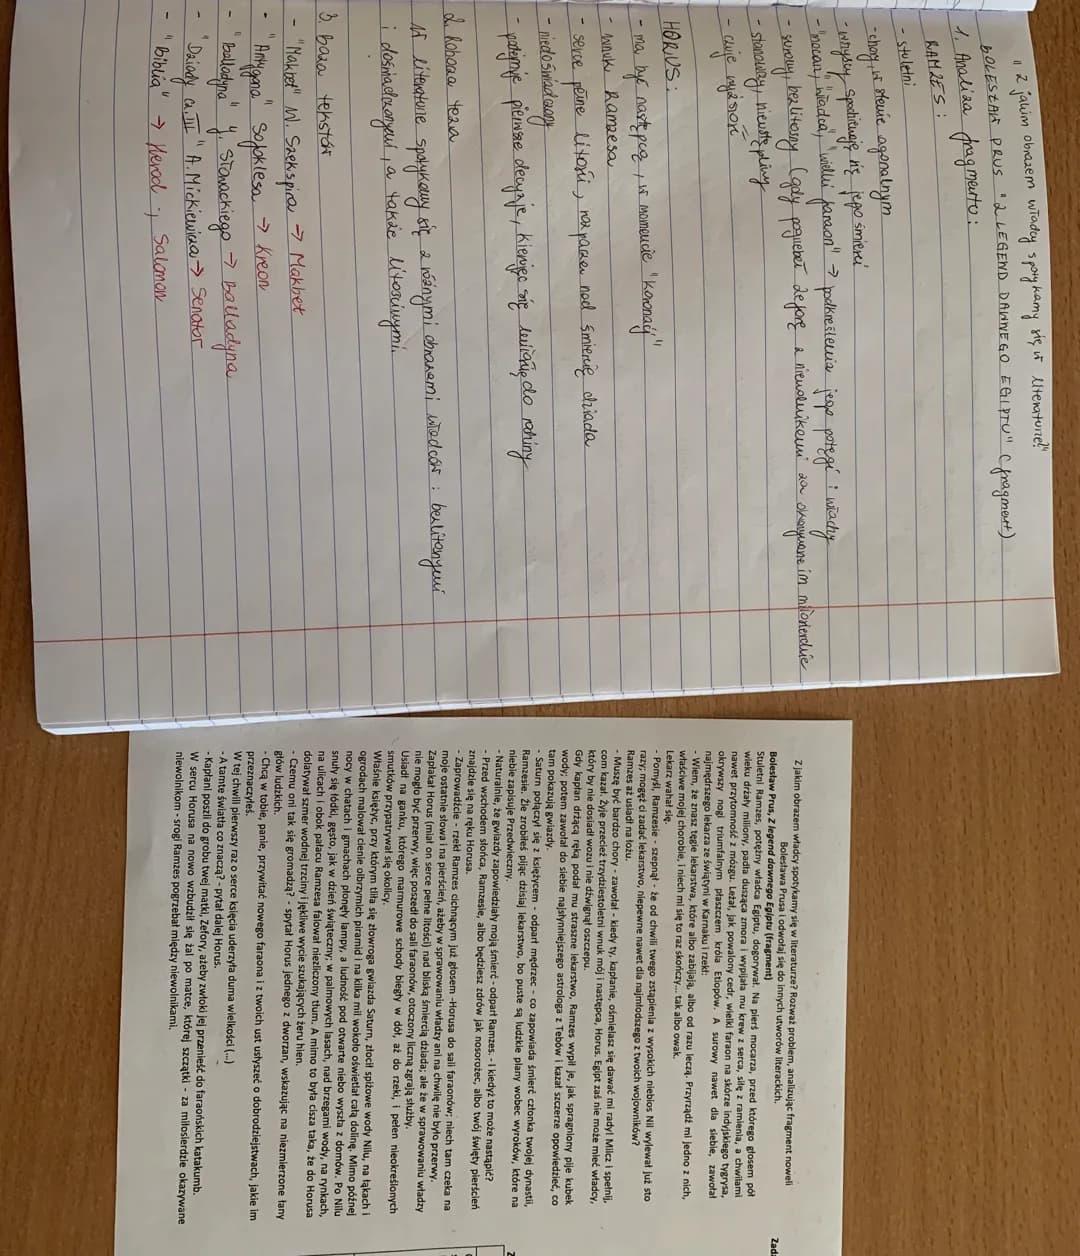 "Z jakim obrazem władcy spotykamy się w literaturze?"
BOLESŁAW PRUS "Z LEGEND DAWNEGO EGIPTU" (fragment)
1. Analiza fragmentu:
RAMZES:
- stuletni
- chory, w stanie agonalnym
- wszyscy spodziewają się jego śmierci
- "mocarz", "władca", "wielki faraon" → podkreślenia jego potęgi i władzy
- surowy, bezlitosny (gdy pogrzebał Zeforę z niewolnikami za okazywane im miłosierdzie
- stanowczy, nieustępliwy
- czuje wyższość
HORUS:
- ma być następcą, w momencie "koronacji"
- wnuk Ramzesa
- serce pełne litości, rozpacza nad śmiercią dziada
- niedoświadczony
- podejmuje pierwsze decyzje, kierując się miłością do rodziny
2 Robocza teza
W literaturze spotykamy się z różnymi obrazami władców: bezlitosnymi
i doświadczonymi, a także litościwymi.
3 Baza tekstów
- "Makbet" W. Szekspira → Makbet
- "Antygona" Sofoklesa → Kreon
- "Balladyna" J. Słowackiego → Balladyna
- "Dziady cz. III" A. Mickiewicza → Senator
- "Biblia" → Herod, Salomon
Z jakim obrazem władcy spotykamy się w literaturze? Rozważ problem, analizując fragment noweli
Bolesława Prusa i odwołaj się do innych utworów literackich.
Bolesław Prus, Z legend dawnego Egiptu (fragment)
Stuletni Ramzes, potężny władca Egiptu, dogorywał. Na pierś mocarza, przed którego głosem pół
wieku drżały miliony, padła dusząca zmora i wypijała mu krew z serca, siłę z ramienia, a chwilami
nawet przytomność z mózgu. Leżał, jak powalony cedr, wielki faraon na skórze indyjskiego tygrysa,
okrywszy nogi triumfalnym płaszczem króla Etiopów. A surowy nawet dla siebie, zawołał
najmędrszego lekarza ze świątyni w Karnaku i rzekł:
- Wiem, że znasz tęgie lekarstwa, które albo zabijają, albo od razu leczą. Przyrządź mi jedno z nich,
właściwe mojej chorobie, i niech mi się to raz skończy... tak albo owak.
Lekarz wahał się.
- Pomyśl, Ramzesie - szepnął - że od chwili twego zstąpienia z wysokich niebios Nil wylewał już sto
razy; mogęż ci zadać lekarstwo, niepewne nawet dla najmłodszego z twoich wojowników?
Ramzes aż usiadł na łożu.
- Muszę być bardzo chory - zawołał - kiedy ty, kapłanie, ośmielasz się dawać mi rady! Milcz i spełnij,
com kazał. Żyje przecież trzydziestoletni wnuk mój i następca, Horus. Egipt zaś nie może mieć władcy,
który by nie dosiadł wozu i nie dźwignął oszczepu.
Gdy kapłan drżącą ręką podał mu straszne lekarstwo, Ramzes wypił je, jak spragniony pije kubek
wody; potem zawołał do siebie najsłynniejszego astrologa z Tebów i kazał szczerze opowiedzieć, co
tam pokazują gwiazdy.
- Saturn połączył się z księżycem - odparł mędrzec - co zapowiada śmierć członka twojej dynastii,
Ramzesie. Źle zrobiłeś pijąc dzisiaj lekarstwo, bo puste są ludzkie plany wobec wyroków, które na
niebie zapisuje Przedwieczny.
- Naturalnie, że gwiazdy zapowiedziały moją śmierć - odparł Ramzes. - I kiedyż to może nastąpić?
- Przed wschodem słońca, Ramzesie, albo będziesz zdrów jak nosorożec, albo twój święty pierścień
znajdzie się na ręku Horusa.
- Zaprowadźcie - rzekł Ramzes cichnącym już głosem -Horusa do sali faraonów; niech tam czeka na
moje ostatnie słowa i na pierścień, ażeby w sprawowaniu władzy ani na chwilę nie było przerwy.
Zapłakał Horus (miał on serce pełne litości) nad bliską śmiercią dziada; ale że w sprawowaniu władzy
nie mogło być przerwy, więc poszedł do sali faraonów, otoczony liczną zgrają służby.
Usiadł na ganku, którego marmurowe schody biegły w dół, aż do rzeki, i pełen nieokreślonych
smutków przypatrywał się okolicy.
Właśnie księżyc, przy którym tliła się złowroga gwiazda Saturn, złocił spiżowe wody Nilu, na łąkach i
ogrodach malował cienie olbrzymich piramid i na kilka mil wokoło oświetlał całą dolinę. Mimo późnej
nocy w chatach i gmachach płonęły lampy, a ludność pod otwarte niebo wyszła z domów. Po Nilu
snuły się łódki, gęsto, jak w dzień świąteczny; w palmowych lasach, nad brzegami wody, na rynkach,
na ulicach i obok pałacu Ramzesa falował niezliczony tłum. A mimo to była cisza taka, że do Horusa
dolatywał szmer wodnej trzciny i jękliwe wycie szukających żeru hien.
- Czemu oni tak się gromadzą? - spytał Horus jednego z dworzan, wskazując na niezmierzone łany
głów ludzkich.
- Chcą w tobie, panie, przywitać nowego faraona i z twoich ust usłyszeć o dobrodziejstwach, jakie im
przeznaczyłeś.
W tej chwili pierwszy raz o serce księcia uderzyła duma wielkości (...)
- A tamte światła co znaczą? - pytał dalej Horus.
- Kapłani poszli do grobu twej matki, Zefory, ażeby zwłoki jej przenieść do faraońskich katakumb.
W sercu Horusa na nowo wzbudził się żal po matce, której szczątki - za miłosierdzie okazywane
niewolnikom - srogi Ramzes pogrzebał między niewolnikami.
Zad